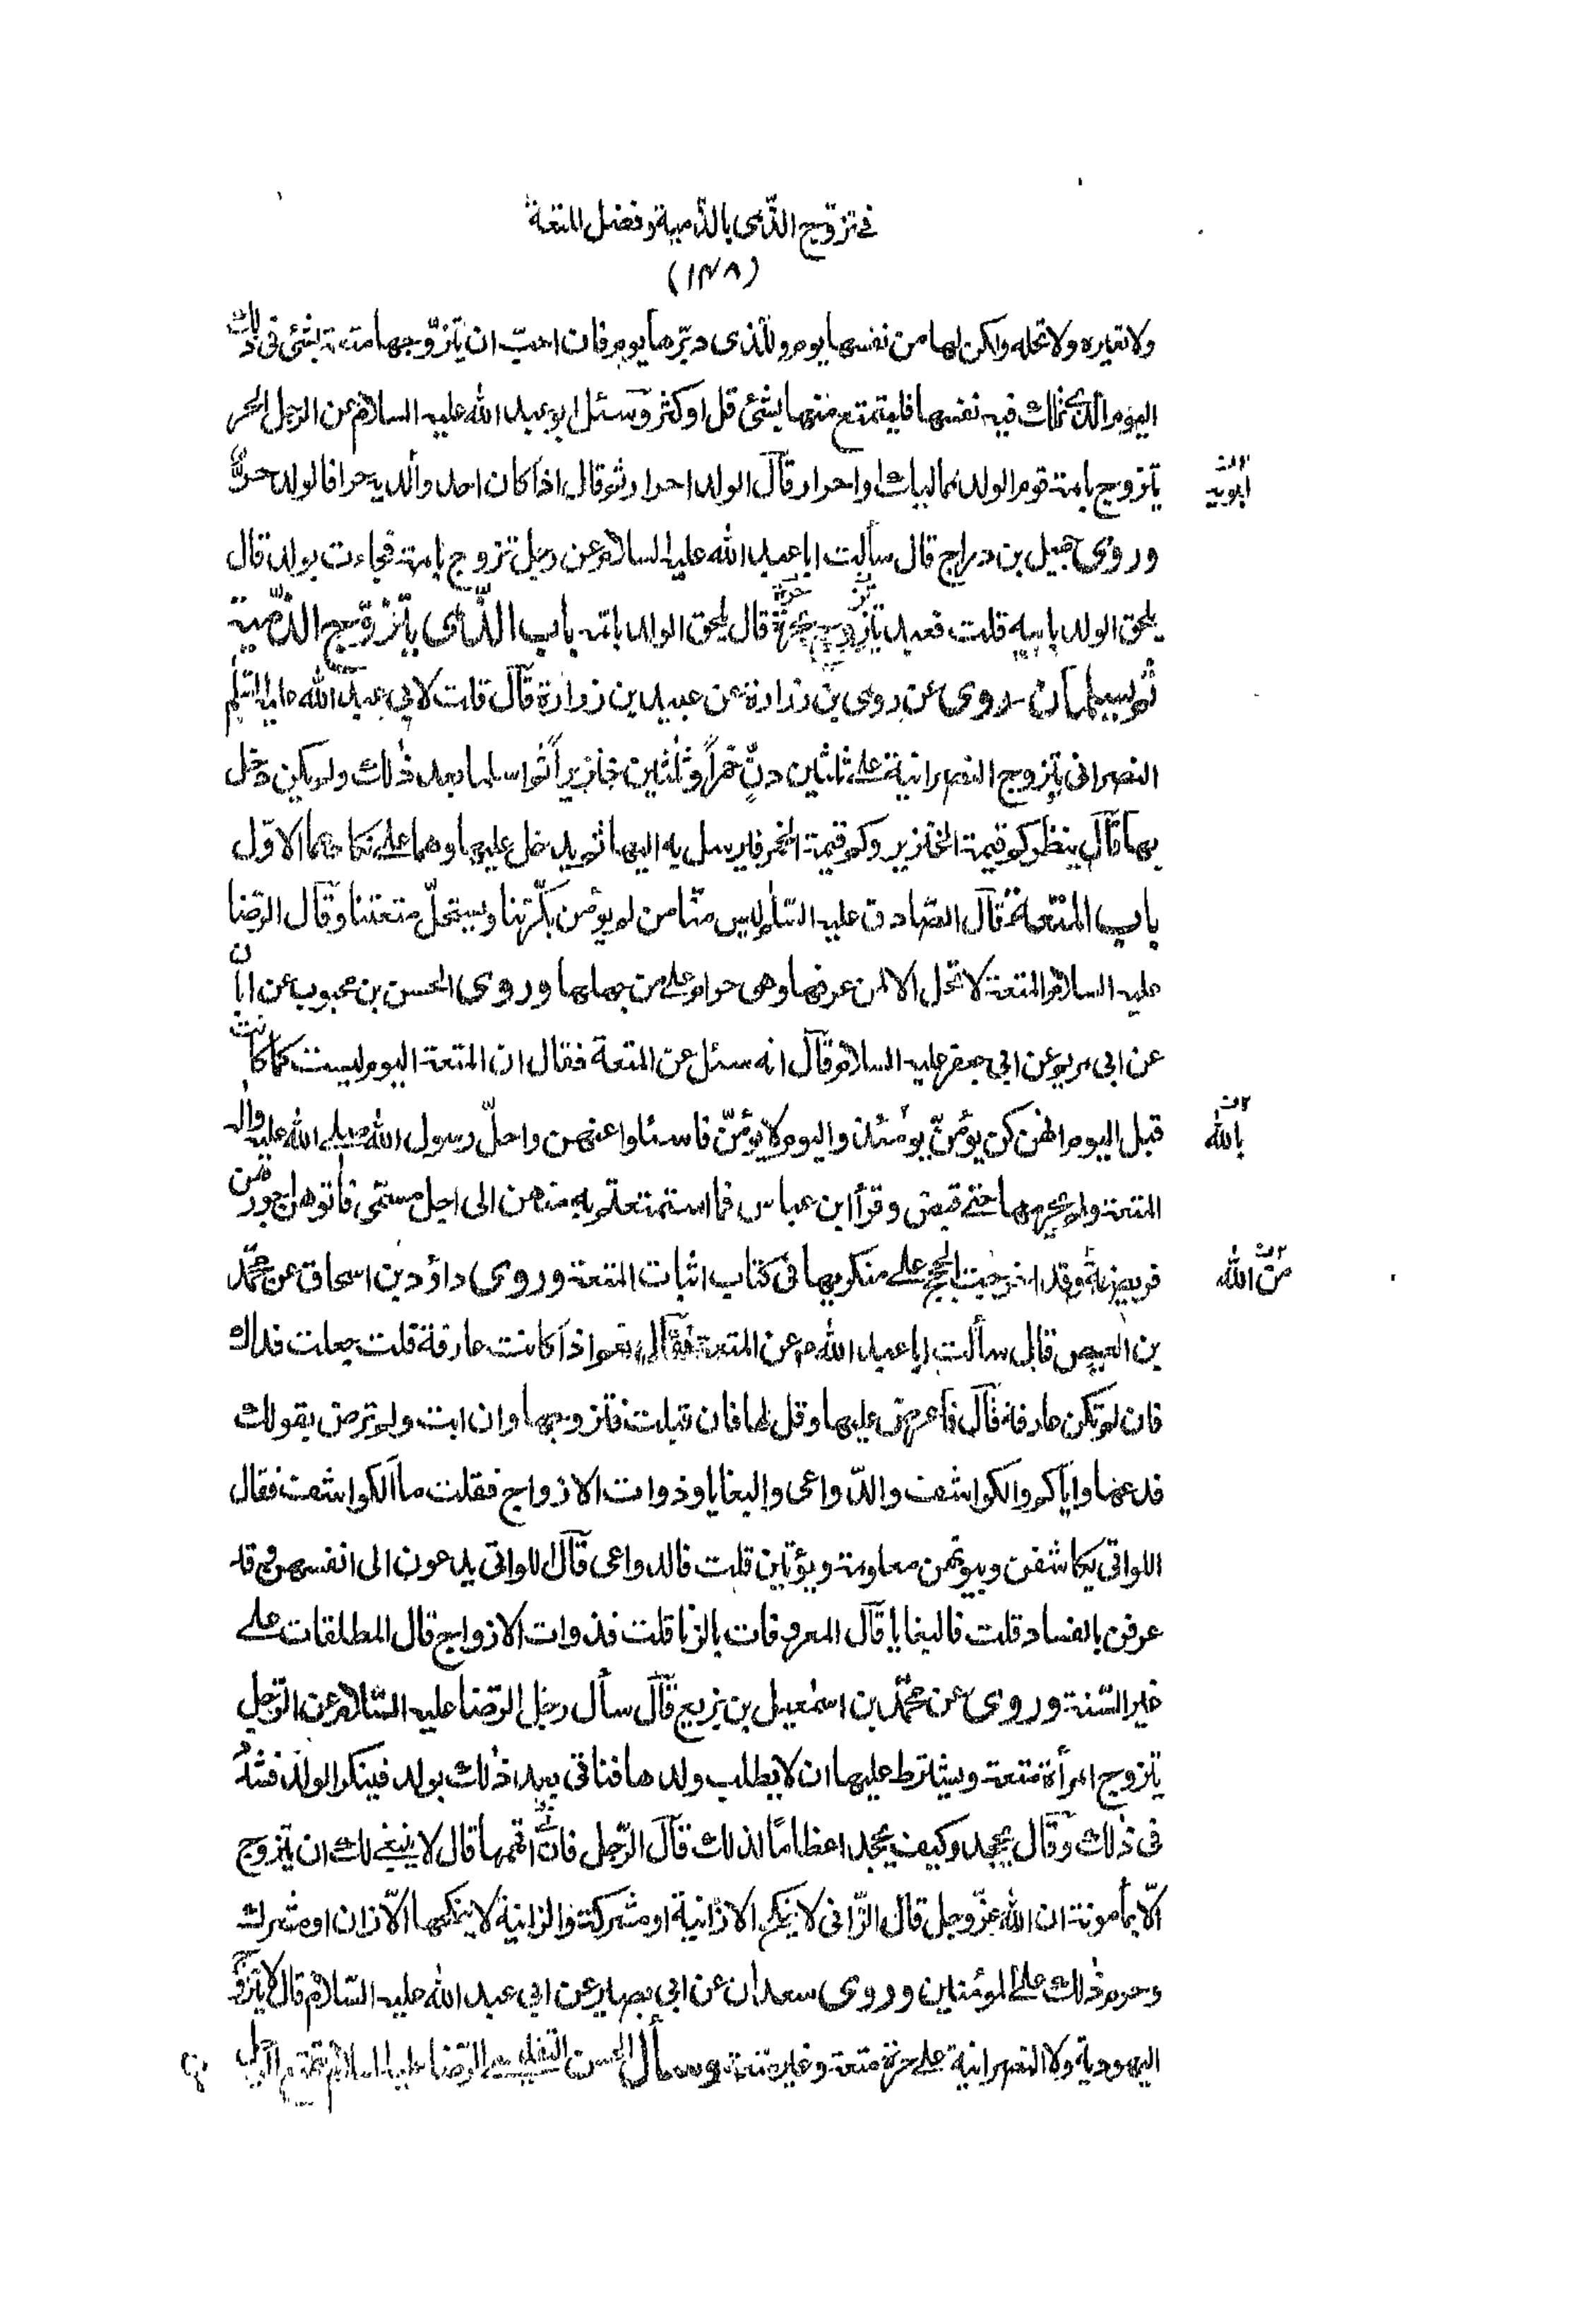 في تزوّيج الذّمى بالذّمية وفضل المتعة
(١٤٨)
ولا تعيره ولا تحله ولكن لها من نفسها يوم وللذى دبّرها يوم فان احبّ ان يتزوّجها متعة بشئ فى ذلك
اليوم الذى تملك فيه نفسها فليتمتع منها بشئ قل او كثر وسئل ابو عبد الله عليه السلام عن الرجل الحر
يتزوج بامة قوم الولد مماليك او احرار قال الولد احرار ثم قال اذا كان احد والديه حرا فالولد حرٌّ
وروى جميل بن دراج قال سألت ابا عبد الله عليه السلام عن رجل تزوج بامة فجاءت بولد قال
يلحق الولد بابيه قلت فعبد يتزوج حرة قال يلحق الولد بامه باب الذّمى يتزوّج الذّمّية
ثم يسلمان روى عن رومى بن زرارة عن عبيد بن زرارة قال قلت لابي عبد الله عليه السّلم
النصرانى يتزوج النصرانية على ثلثين دنّ خمراً وثلثين خنزيراً ثم اسلما بعد ذٰلك ولم يكن دخل
بها قال ينظر كم قيمة الخنزير وكم قيمة الخمر فيرسل به اليها ثم يدخل عليها وهما على نكاحهما الاوّل
باب المتعة قال الصّادق عليه السّلٰم ليس منّا من لم يؤمن بكرّتنا ويستحلّ متعتنا وقال الرّضا
عليه السلام المتعة لا تحل الا لمن عرفها وهى حرام على من جهلها وروى الحسن بن محبوب عن ابان
عن ابى مريم عن ابي جعفر عليه السلام قال انه سئل عن المتعة فقال ان المتعة اليوم ليست كما كانت
قبل اليوم انهن كن يؤمنّ يومئذ واليوم لا يؤمنّ فاسئلوا عنهن واحلّ رسول الله صلى الله عليه واله
المتعة ولم يحرمها حتى قبض وقرأ ابن عباس فما استمتعتم به منهن الى اجل مسمّى فأتوهن اجورهن
فريضة وقد اخرجت الحجج على منكريها فى كتاب اثبات المتعة وروى داؤد بن اسحاق عن محمّد
بن الفيض قال سألت ابا عبد الله ع عن المتعة فقال نعم اذا كانت عارفة قلت جعلت فداك
فان لم تكن عارفة قال فأعرض عليها وقل لها فان قبلت فتزوجها وان ابت ولم ترض بقولك
فدعها واياكم والكواشف والدّواعى والبغايا وذوات الازواج فقلت ما الكواشف فقال
اللواتى يكاشفن وبيوتهن معلومة ويؤتين قلت فالدواعى قال اللواتى يدعون الى انفسهن وقد
عرفن بالفساد قلت فالبغايا قال المعروفات بالزنا قلت فذوات الازواج قال المطلقات على
غير السّنة وروى عن محمّد بن اسمٰعيل بن بزيع قال سأل رجل الرّضا عليه السّلام عن الرّجل
يتزوج امرأة متعة ويشترط عليها ان لا يطلب ولدها فتاتى بعد ذلك بولد فينكر الولد فشدّد
فى ذلك وقال يجحد وكيف يجحد اعظاما لذلك قال الرّجل فان اتهمها قال لا ينبغى لك ان تتزوج
الّا بمأمونة ان الله عزّ وجل قال الزّانى لا ينكح الا زانية او مشركة والزانية لا ينكحها الّا زان او مشرك
وحرم ذٰلك على المؤمنين وروى سعدان عن ابي بصير عن ابي عبد الله عليه السّلام قال لا يتزوج
اليهودية ولا النصرانية على حرة متعة وغير متعة وسأل الحسن التفليسى الرّضا عليه السلام يتمتع الرجل
ابويه
بالله
من الله